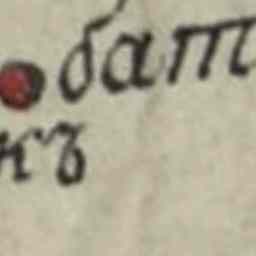 бат
къ